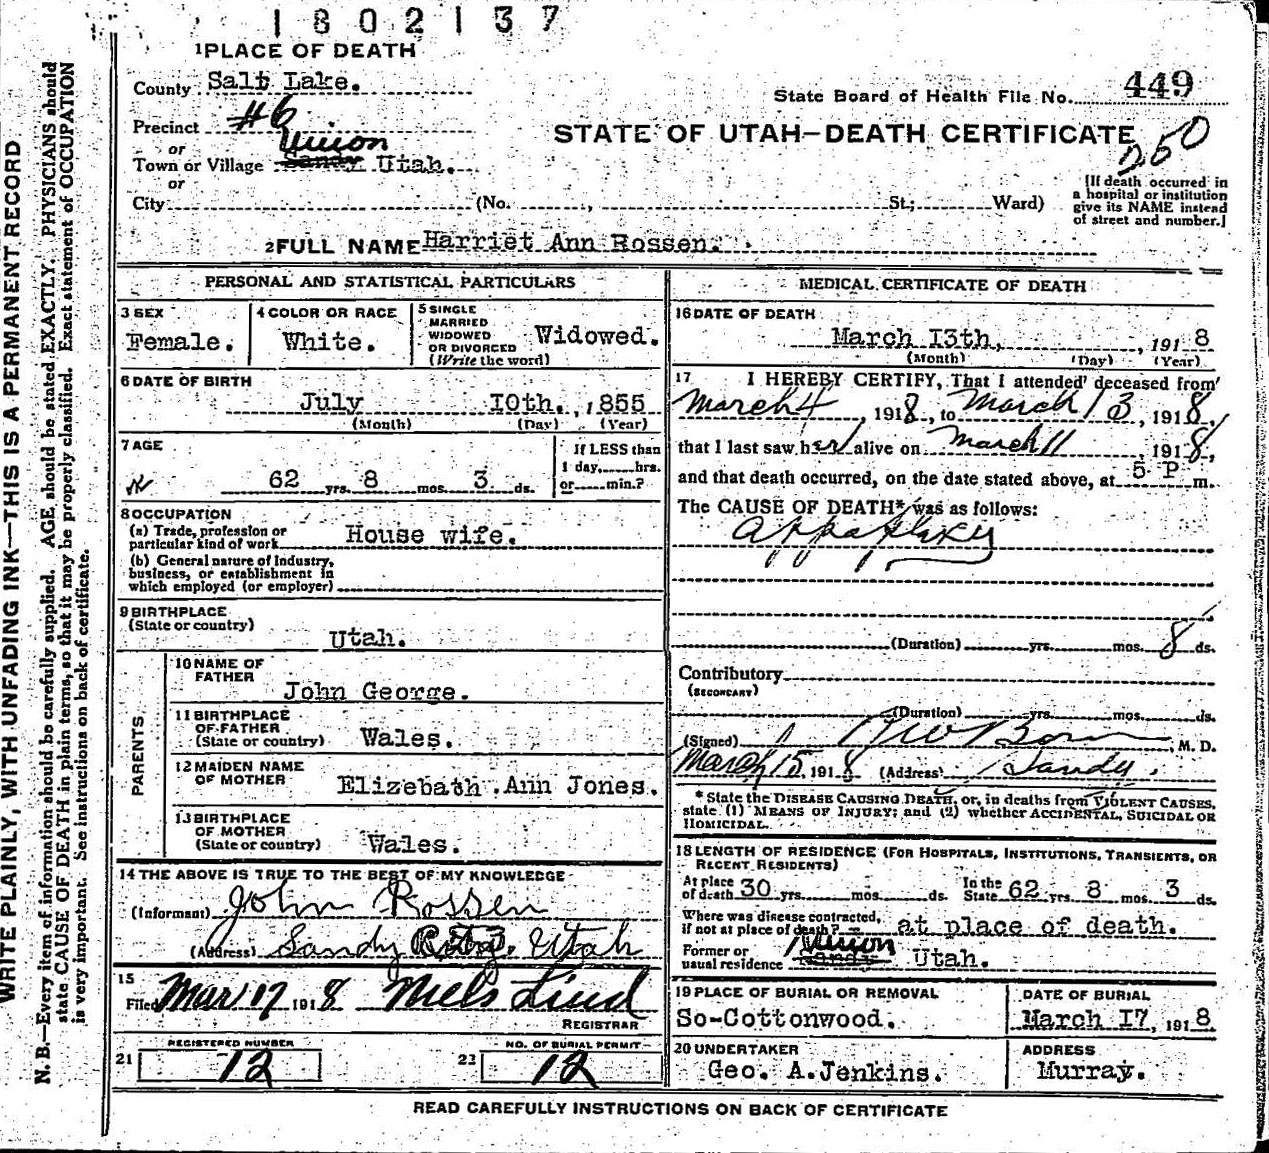 1802137
1 PLACE OF DEATH
County Salt Lake.
State Board of Health File No. 449
Precinct #6
STATE OF UTAH—DEATH CERTIFICATE
250
or
Town or Village Sandy Union Utah.
or
City (No. , St.; Ward)
[If death occurred in
a hospital or institution
give its NAME instead
of street and number.]
2 FULL NAME Harriet Ann Rossen.
PERSONAL AND STATISTICAL PARTICULARS
3 SEX
Female.
4 COLOR OR RACE
White.
5 SINGLE
MARRIED
WIDOWED
OR DIVORCED
(Write the word)
Widowed.
6 DATE OF BIRTH
July 10th. , 1855
(Month) (Day) (Year)
7 AGE
62 yrs. 8 mos. 3 ds.
If LESS than
1 day, hrs.
or min.?
8 OCCUPATION
(a) Trade, profession or
particular kind of work House wife.
(b) General nature of Industry,
business, or establishment in
which employed (or employer)
9 BIRTHPLACE
(State or country)
Utah.
PARENTS
10 NAME OF
FATHER
John George.
11 BIRTHPLACE
OF FATHER
(State or country) Wales.
12 MAIDEN NAME
OF MOTHER Elizebath Ann Jones.
13 BIRTHPLACE
OF MOTHER
(State or country) Wales.
14 THE ABOVE IS TRUE TO THE BEST OF MY KNOWLEDGE
(Informant) John Rossen
(Address) Sandy Utah
15
Filed Mar 17 1918 Niels Lind
REGISTRAR
21 REGISTERED NUMBER
12
23 NO. OF BURIAL PERMIT
12
MEDICAL CERTIFICATE OF DEATH
16 DATE OF DEATH
March 13th, , 1918
(Month) (Day) (Year)
17 I HEREBY CERTIFY, That I attended deceased from
March 4 , 1918, to March 13, 1918,
that I last saw her alive on March 11 , 1918,
and that death occurred, on the date stated above, at 5 P m.
The CAUSE OF DEATH* was as follows:
appoplexy
(Duration) yrs. mos. 8 ds.
Contributory
(SECONDARY)
(Duration) yrs. mos. ds.
(Signed) , M. D.
March 15, 1918 (Address) Sandy.
* State the DISEASE CAUSING DEATH, or, in deaths from VIOLENT CAUSES,
state (1) MEANS OF INJURY; and (2) whether ACCIDENTAL, SUICIDAL OR
HOMICIDAL.
18 LENGTH OF RESIDENCE (FOR HOSPITALS, INSTITUTIONS, TRANSIENTS, OR
RECENT RESIDENTS)
At place
of death 30 yrs. mos. ds. In the
State 62 yrs. 8 mos. 3 ds.
Where was disease contracted,
if not at place of death? at place of death.
Former or
usual residence Sandy Union Utah.
19 PLACE OF BURIAL OR REMOVAL
So-Cottonwood.
DATE OF BURIAL
March 17, 1918
20 UNDERTAKER
Geo. A. Jenkins.
ADDRESS
Murray.
READ CAREFULLY INSTRUCTIONS ON BACK OF CERTIFICATE
WRITE PLAINLY, WITH UNFADING INK—THIS IS A PERMANENT RECORD
N. B.—Every item of information should be carefully supplied. AGE should be stated EXACTLY. PHYSICIANS should
state CAUSE OF DEATH in plain terms, so that it may be properly classified. Exact statement of OCCUPATION
is very important. See instructions on back of certificate.